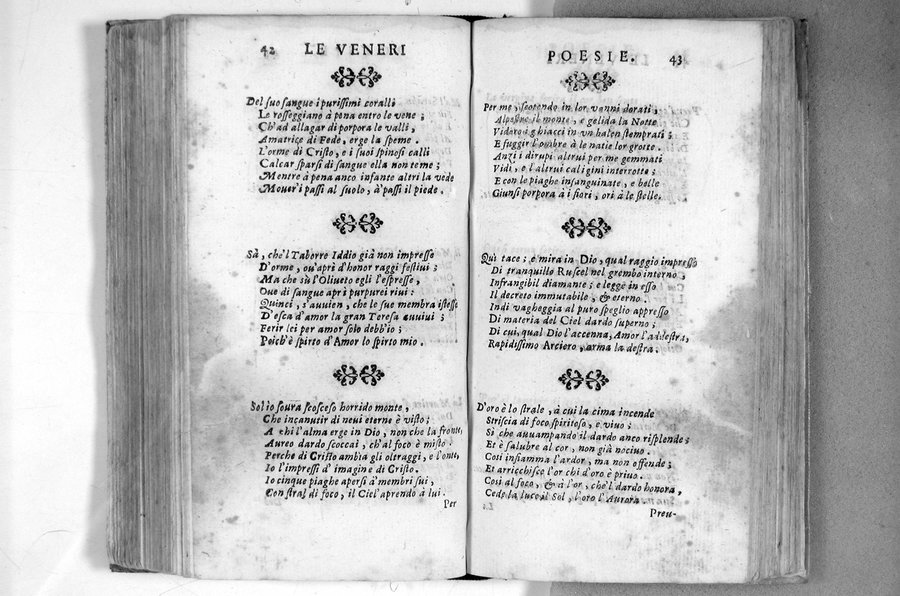 42 LE VENERI
Del suo sangue i purissimi coralli
Le rosseggiano à pena entro le vene ;
Ch'ad allagar di porpora le valli,
Amatrice di Fede, erge la speme.
L'orme di Cristo, e i suoi spinosi calli
Calcar sparsi di sangue ella non teme ;
Mentre à pena anco infante altri la vede
Mover'i passi al suolo, à passi il piede.
Sà, che'l Taborre Iddio già non impresse
D'orme, ou'aprì d'honor raggi festiui ;
Ma che sù l'Oliueto egli l'espresse,
Oue di sangue aprì purpurei riui:
Quinci, s'auuien, che le sue membra istesse
D'esca d'amor la gran Teresa auuiui ;
Ferir lei per amor solo debb'io ;
Poich'è spirto d'Amor lo spirto mio.
Sol io soura scosceso horrido monte,
Che incanutir di neui eterne è visto ;
A chi l'alma erge in Dio, non che la fronte,
Aureo dardo scoccai, ch'al foco è misto.
Perche di Cristo ambìa gli oltraggi, e l'onte,
Io l'impressi d'imagine di Cristo.
Io cinque piaghe apersi à membri sui,
Con stral di foco, il Ciel'aprendo à lui.
Per
POESIE. 43
Per me, scotendo in lor vanni dorati,
Alpestre il monte, e gelida la Notte
Vider gli ghiacci in vn balen stemprati ;
E fuggir l'ombre à le natie lor grotte.
Anzi i dirupi altrui per me gemmati
Vidi, e l'altrui caligini interrotte ;
E con le piaghe insanguinate, e belle
Giunsi porpora à i fiori, ori à le stelle.
Quì tace ; e mira in Dio, qual raggio impresso
Di tranquillo Ruscel nel grembo interno,
Infrangibil diamante ; e legge in esso
Il decreto immutabile, & eterno.
Indi vagheggia al puro speglio appresso
Di materia del Ciel dardo superno ;
Di cui, qual Dio l'accenna, Amor l'addestra,
Rapidissimo Arciero, arma la destra.
D'oro è lo strale, à cui la cima incende
Striscia di foco spiritoso, e viuo ;
Sì che auuampando il dardo anco risplende ;
Et è salubre al cor, non già nociuo.
Così infiamma l'ardor, ma non offende ;
Et arricchisce l'or chi d'oro è priuo.
Così al foco, & à l'or, che'l dardo honora,
Cede la luce il Sol, l'oro l'Aurora
Preu-